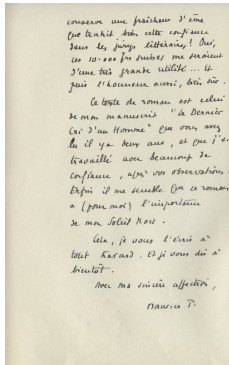 conserve une fraîcheur d'âme
que trahit bien cette confiance
dans les jurys littéraires! Oui,
ces 10.000 frs suisses me seraient
d'une très grande utilité... Et
puis l'honneur aussi, bien sûr.
Ce texte de roman est celui
de mon manuscrit "Le Dernier
Cri d'un Homme" que vous avez
lu il y a deux ans, et que j'ai
travaillé avec beaucoup de
confiance, après vos observations.
Enfin il me semble que ce roman
a (pour moi) l'importance
de mon Soleil Noir.
Cela, je vous l'écris à
tout hasard. Et je vous dis à
bientôt.
Avec ma sincère affection,
Maurice T.